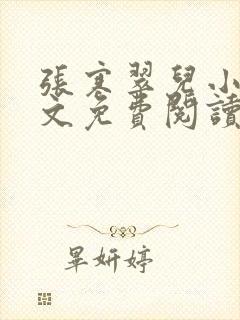 張寒翠兒小
文免費閱讀
畢妍婷